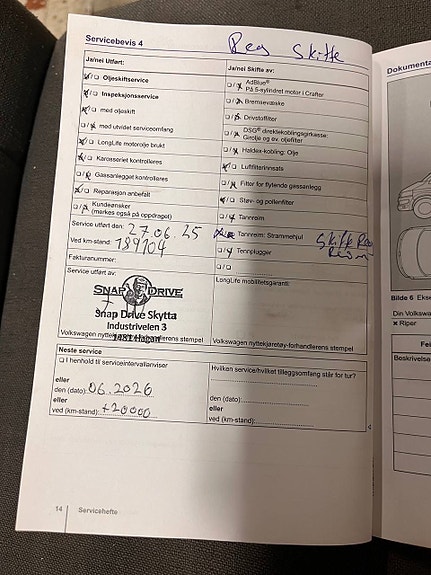 Servicebevis 4
Reg Skifte
Ja/nei Utført:
Ja/nei Skifte av:
Oljeskiftservice
AdBlue®
På 5-sylindret motor i Crafter
Inspeksjonsservice
Bremsevæske
med oljeskift
Drivstoffilter
med utvidet serviceomfang
DSG® direktekoblingsgirkasse:
Girolje og ev. oljefilter
LongLife motorolje brukt
Haldex-kobling: Olje
Karosseriet kontrolleres
Luftfilterinnsats
Gassanlegget kontrolleres
Filter for flytende gassanlegg
Reparasjon anbefalt
Støv- og pollenfilter
Kundeønsker
(merkes også på oppdraget)
Tannreim
Service utført den: 27.06.25
Tannreim: Strammehjul
Skifte Reg
Ved km-stand: 189104
Tennplugger
Fakturanummer:
Service utført av:
LongLife mobilitetsgaranti:
SNAP DRIVE
Snap Drive Skytta
Industriveien 3
1481 Hagan
Volkswagen nyttekjøretøy-forhandlerens stempel
Volkswagen nyttekjøretøy-forhandlerens stempel
Neste service
I henhold til serviceintervallanviser
Hvilken service/hvilket tilleggsomfang står for tur?
eller
den (dato): 06.2026
den (dato):
eller
eller
ved (km-stand): +20000
ved (km-stand):
14
Servicehefte
Dokumenta
Bilde 6 Ekse
Din Volksw
x Riper
Fei
Beskrivelse